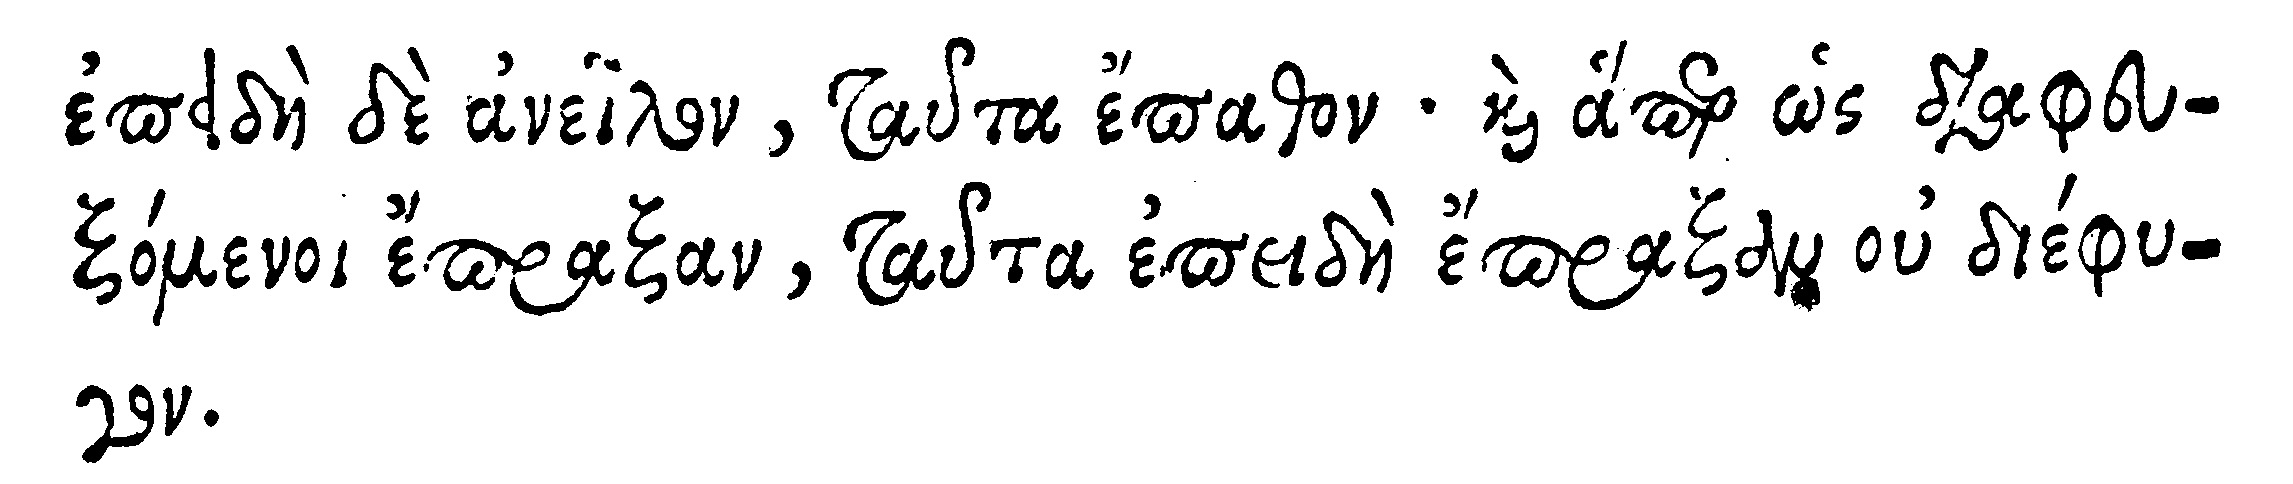 ἐπειδὴ δὲ ἀνεῖλον, ταῦτα ἔπαθον · καὶ ἅπερ ὡς διαφευ-
ξόμενοι ἔπραξαν, ταῦτα ἐπειδὴ ἔπραξαν οὐ διέφυ-
γον.